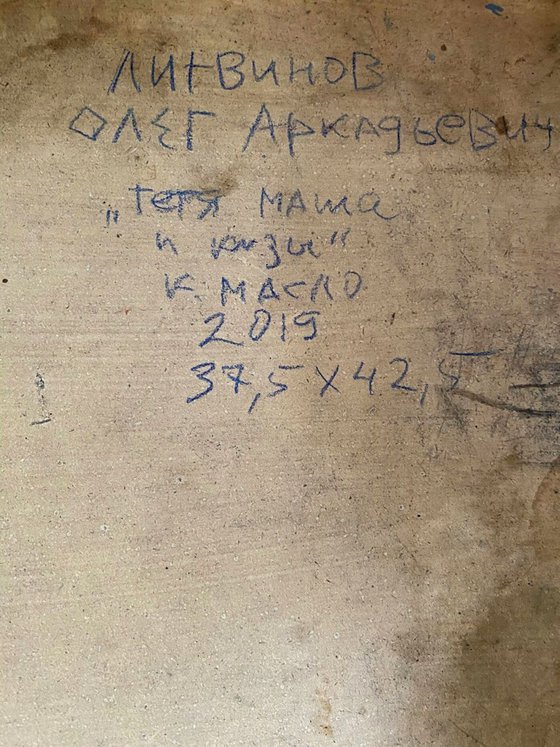 Литвинов
Олег Аркадьевич
„Тетя Маша
и козы“
к. масло
2019
37,5 х 42,5